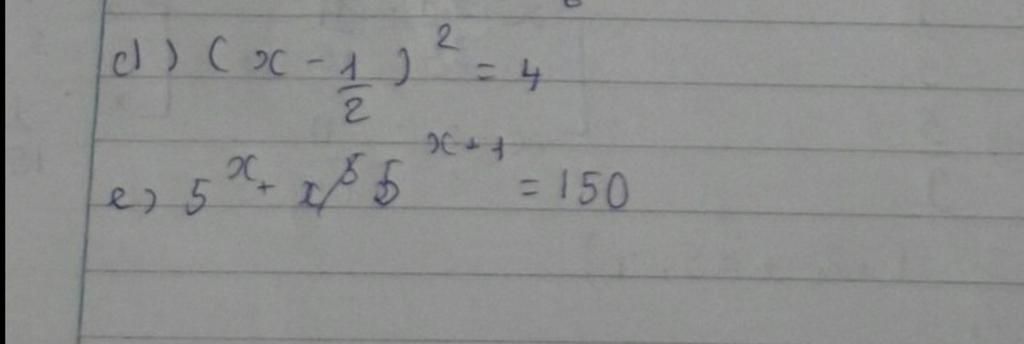 d) (x - 1/2)² = 4
e) 5^x + 5^(x+1) = 150